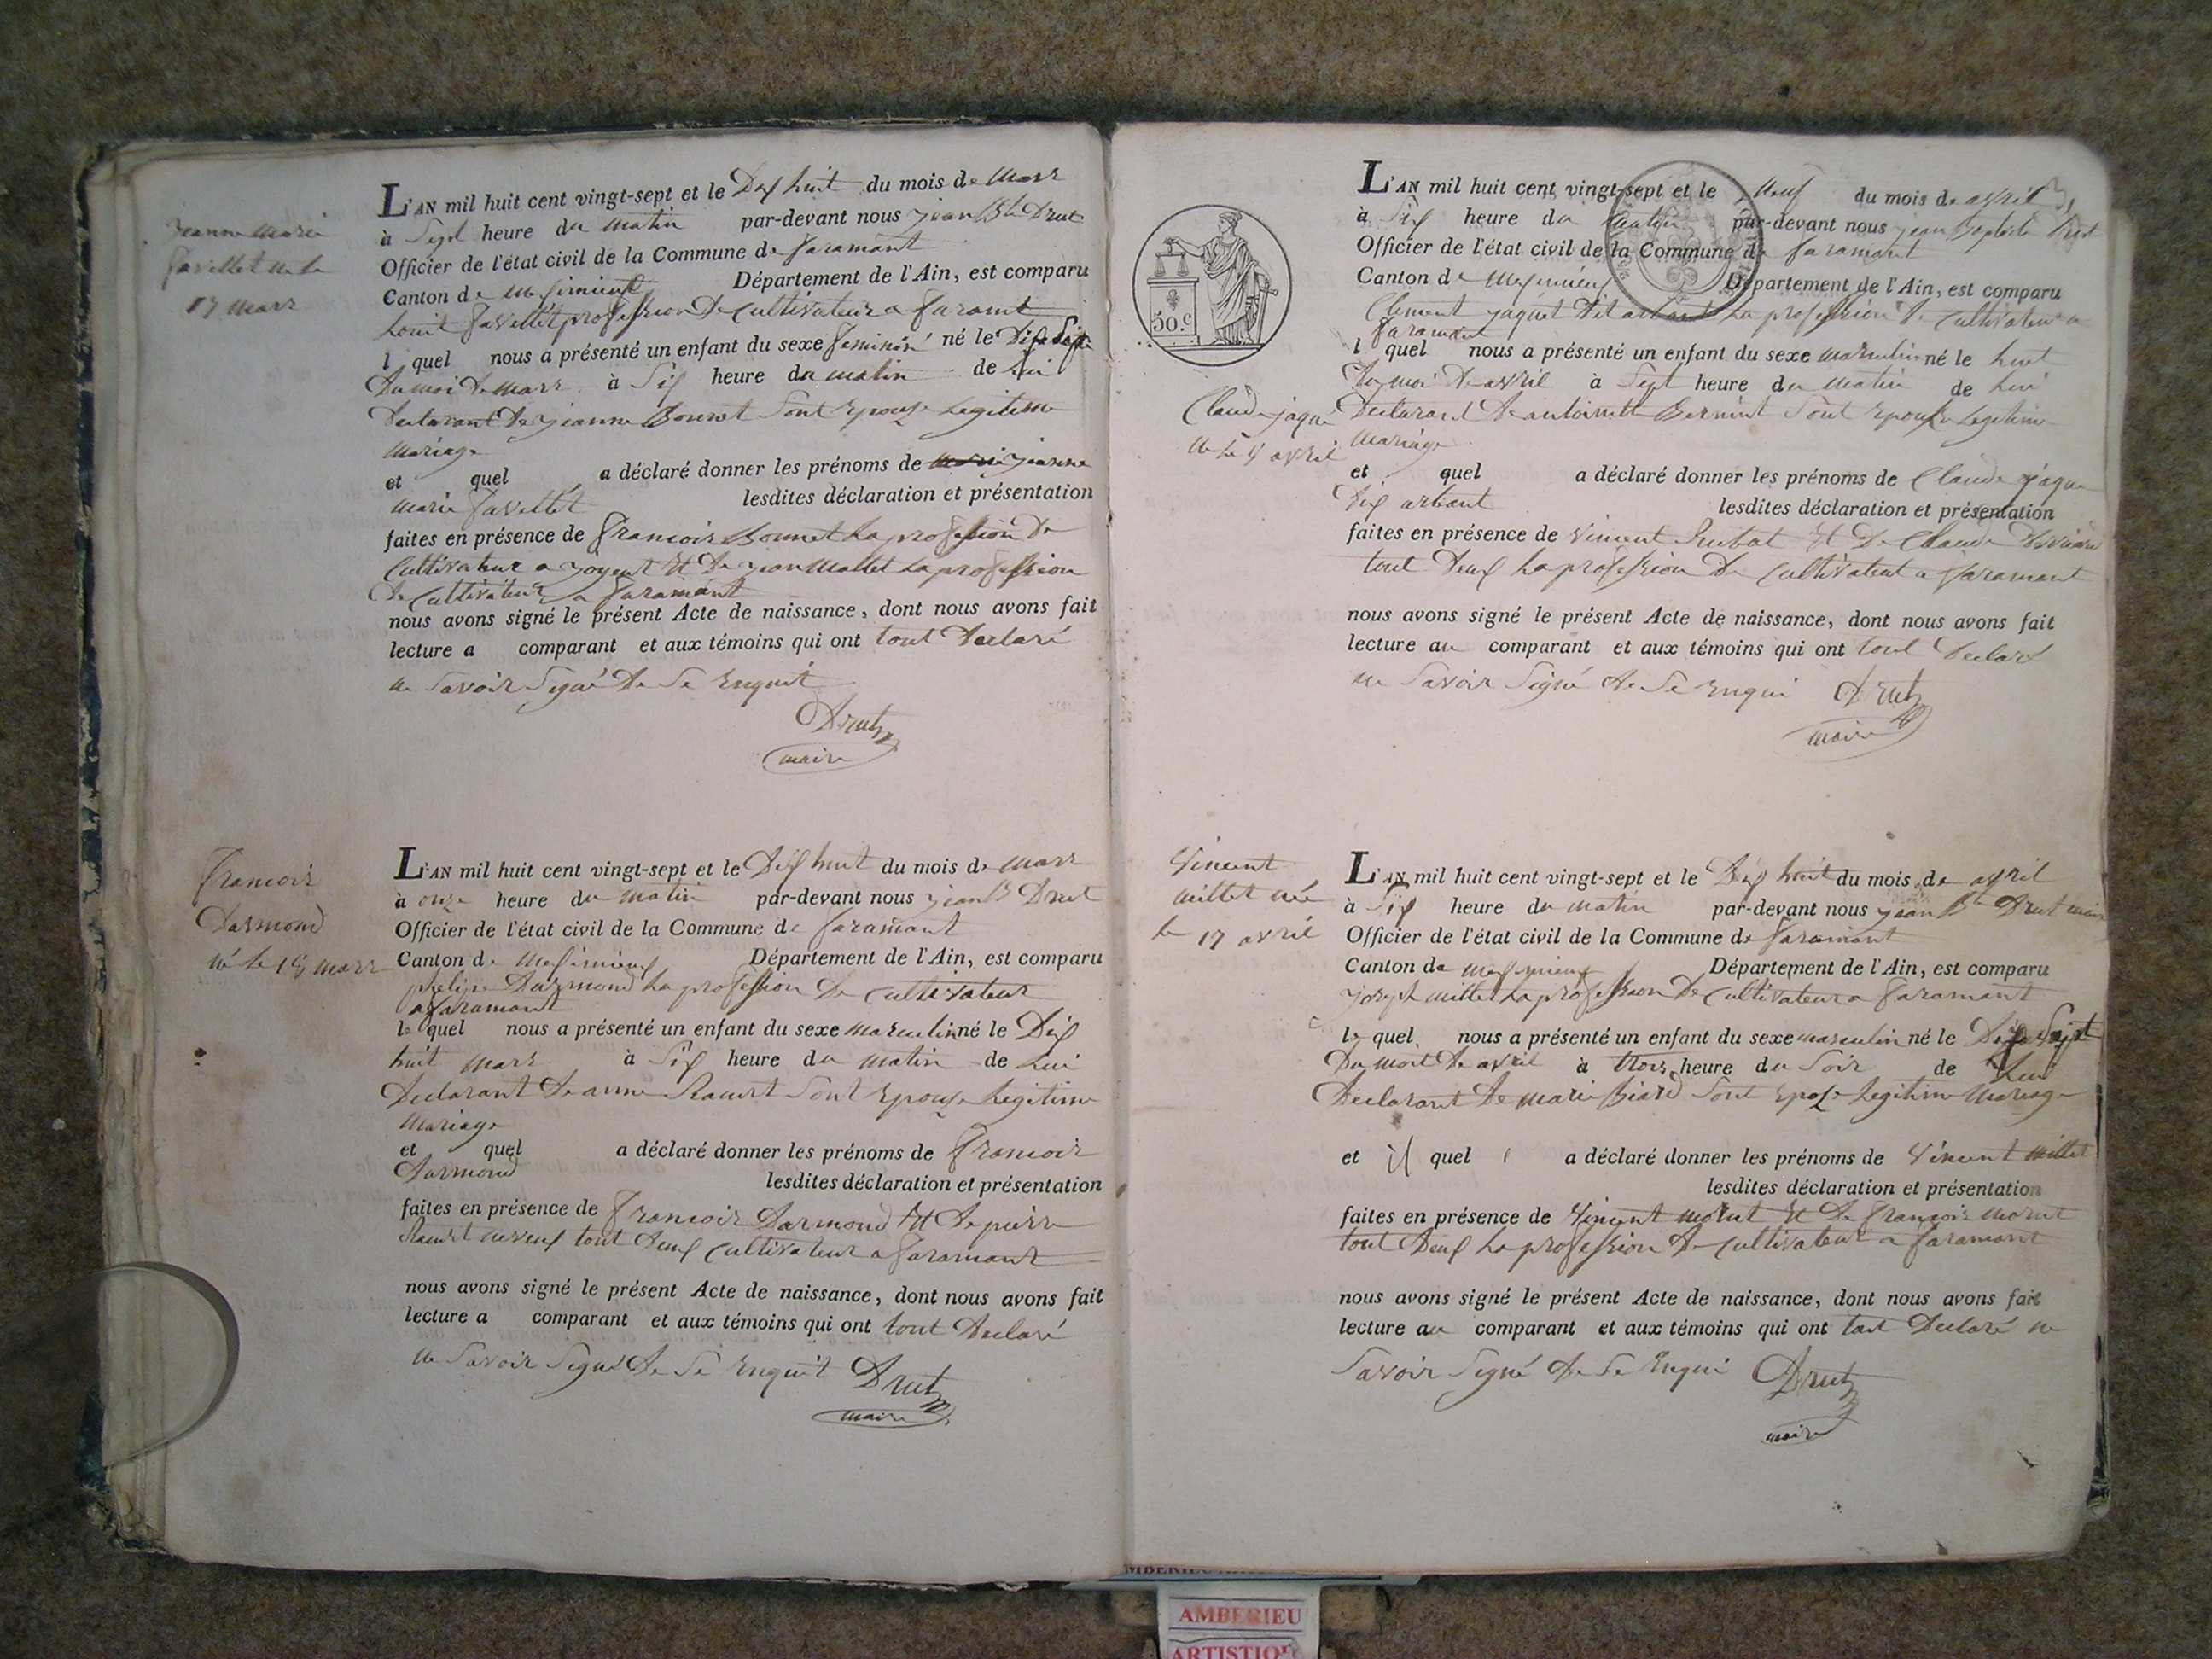 Jeanne Marie
favellet ne le
17 mars
L'AN mil huit cent vingt-sept et le Dix huit du mois de Mars
à Sept heure du matin par-devant nous jean Bte Drut
Officier de l'état civil de la Commune de faramant
Canton de meximieux Département de l'Ain, est comparu
Louit favellet profession De cultivateur a faramt
l quel nous a présenté un enfant du sexe feminin né le Dix Sept
Du moi De mars à Six heure du matin de Lui
Declarant De jeanne Bonnet Sont Epouse Legitime
Mariage
et quel a déclaré donner les prénoms de jeanne
marie favellet lesdites déclaration et présentation
faites en présence de francois Bonnet La profession De
Cultivateur a joyeut Et De jean Mallet La profession
De Cultivateur a faramant
nous avons signé le présent Acte de naissance, dont nous avons fait
lecture a comparant et aux témoins qui ont tout Declaré
ne Savoir Signé De Se Enquit
Drut
maire
francois
Darmond
né le 18 mars
L'AN mil huit cent vingt-sept et le Dix huit du mois de mars
à onze heure du matin par-devant nous jean B Drut
Officier de l'état civil de la Commune de faramant
Canton de Meximieux Département de l'Ain, est comparu
phelipe Darmond La profession De cultivateur
a faramant
le quel nous a présenté un enfant du sexe masculin né le Dix
huit mars à Six heure du matin de Lui
Declarant De anne Sont Epouse Legitime
Mariage
et quel a déclaré donner les prénoms de francois
Darmond lesdites déclaration et présentation
faites en présence de francois Darmond Et De pierre
neveux tout Deux cultivateur a faramant
nous avons signé le présent Acte de naissance, dont nous avons fait
lecture a comparant et aux témoins qui ont tout Declaré
ne Savoir Signé De Se Enquit Drut
maire
50.c
Claude jaque
ne le 8 avril
L'AN mil huit cent vingt-sept et le Neuf du mois de avril
à Six heure du matin par-devant nous jean Baptiste Drut
Officier de l'état civil de la Commune de faramant
Canton de Meximieux Département de l'Ain, est comparu
Clement jaquet Dit arbant La profession De cultivateur a
faramant
l quel nous a présenté un enfant du sexe masculin né le huit
Du moi De avril à Sept heure du matin de Lui
Declarant De antoinette Sont Epouse Legitime
Mariage
et quel a déclaré donner les prénoms de Claude jaque
Dit arbant lesdites déclaration et présentation
faites en présence de Vincent Et De Claude
tout Deux La profession De Cultivateur a faramant
nous avons signé le présent Acte de naissance, dont nous avons fait
lecture au comparant et aux témoins qui ont tout Declaré
ne Savoir Signé De Se Enqui Drut
maire
Vincent
millet née
le 17 avril
L'AN mil huit cent vingt-sept et le Dix huit du mois de avril
à Six heure du matin par-devant nous jean Bte Drut maire
Officier de l'état civil de la Commune de faramant
Canton de meximieux Département de l'Ain, est comparu
joseph millet La profession De cultivateur a faramant
le quel nous a présenté un enfant du sexe masculin né le Dix Sept
Du moit De avril à trois heure du Soir de Lui
Declarant De marie Sont Epose Legitime Mariage
et il quel a déclaré donner les prénoms de Vincent millet
lesdites déclaration et présentation
faites en présence de Vincent Et De francois
tout Deux La profession De cultivateur a faramant
nous avons signé le présent Acte de naissance, dont nous avons fait
lecture au comparant et aux témoins qui ont tout Declaré ne
Savoir Signé De Se Enqui Drut
maire
AMBERIEU
ARTISTIQ